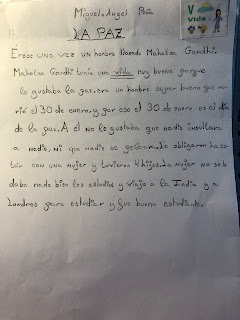 Miguel Angel Peña
V
vida
LA PAZ
Erase una vez un hombre llamado Mahatma Gandhi.
Mahatma Gandhi tenía una vida muy buena porque
le gustaba la paz, era un hombre super bueno que mu-
rió el 30 de enero, y por eso el 30 de enero es el día
de la paz. A él no le gustaba que nadie insultara
a nadie, ni que nadie se peleara. Le obligaron ha casa
rse con una mujer y tuvieron 4 hijos. La mujer no se le
daba nada bien los estudios y viajo a la India y a
Londres para estudiar y fue buena estudiante.